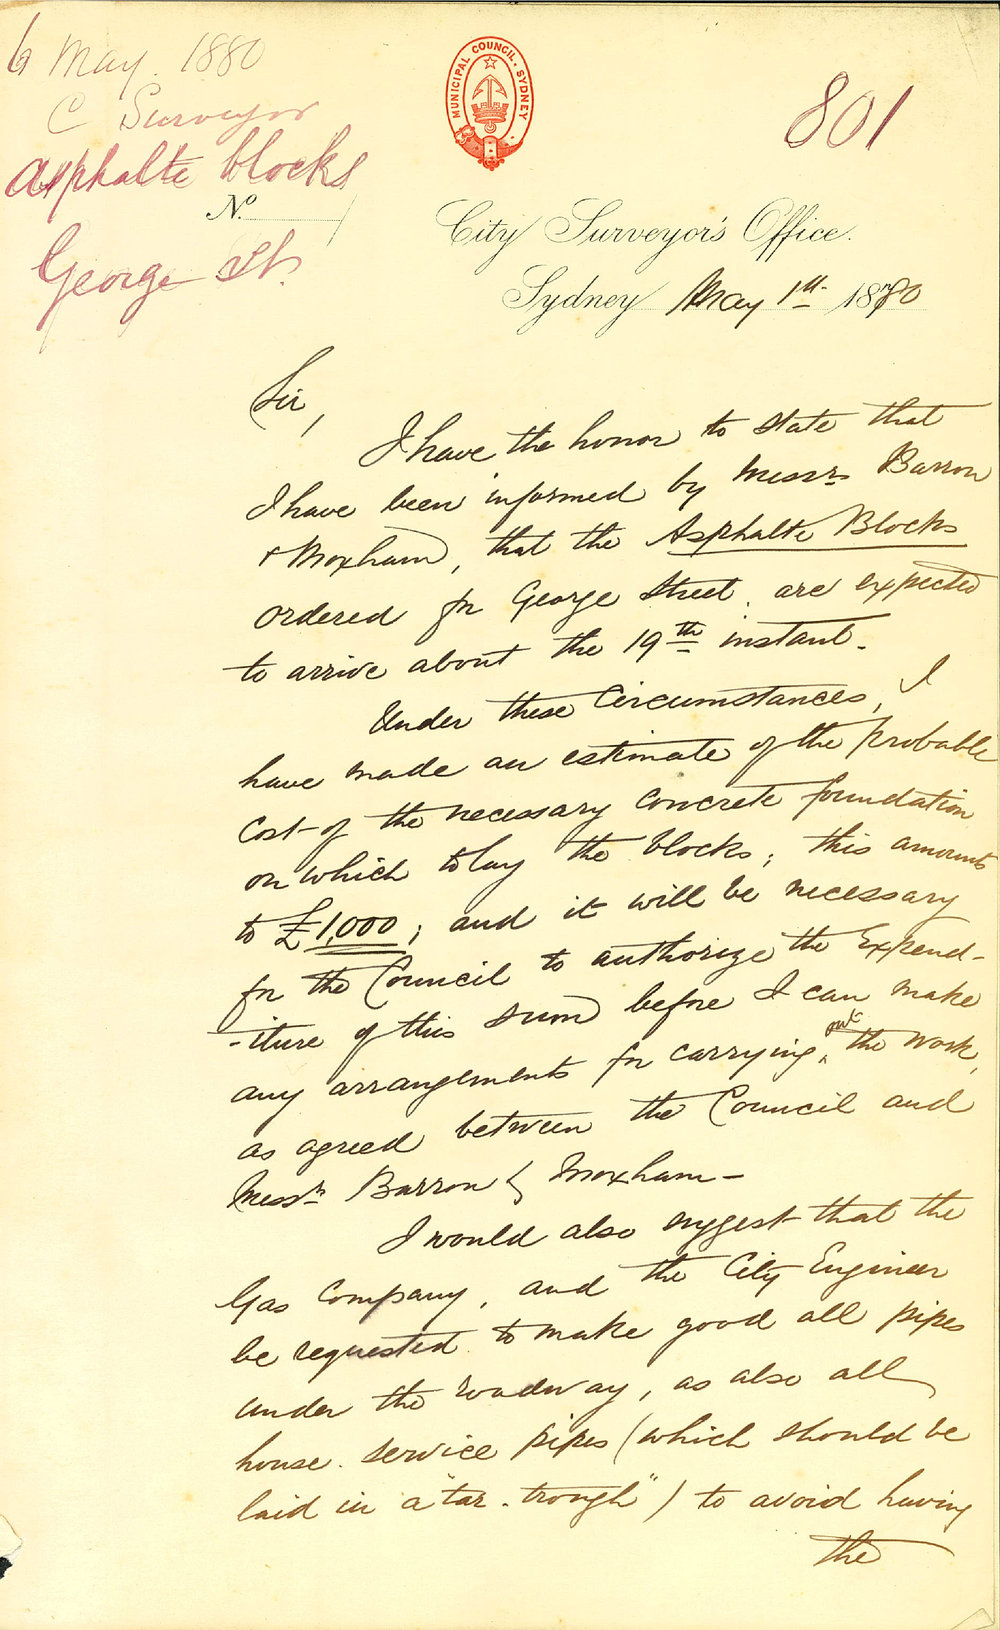 6 May. 1880
C Surveyor
Asphalte blocks
George St.
MUNICIPAL COUNCIL. SYDNEY
801
No.
City Surveyor's Office.
Sydney May 1st 1880
Sir,
I have the honor to state that
I have been informed by Messrs Barron
& Moxham, that the Asphalte Blocks
ordered for George Street are expected
to arrive about the 19th instant.
Under these circumstances, I
have made an estimate of the probable
cost of the necessary concrete foundation
on which to lay the blocks; this amounts
to £1,000; and it will be necessary
for the Council to authorize the Expend-
-iture of this sum before I can make
any arrangements for carrying out the work,
as agreed between the Council and
Messrs Barron & Moxham -
I would also suggest that the
Gas Company, and the City Engineer
be requested to make good all pipes
under the roadway, as also all
house service pipes (which should be
laid in a "tar-trough") to avoid having
the